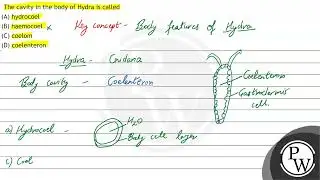 The cavity in the body of Hydra is called
(A) hydrocoel
(B) haemocoel x
(C) coelom
(D) coelenteron
Key concept - Body features of Hydra
Hydra - Cnidaria
Body cavity - Coelenteron
Coelenteron
Gastrodermis
cell.
a) Hydrocoel -
H2O
Body cell layer
c) Coel
PW